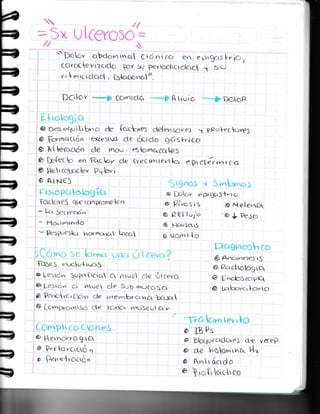 =Sx Ulceroso=
"Dolor abdominal crónico en epigastrio,
caracterizado por su periodicidad y su
ritmicidad. Estacional".
Dolor → comida → Alivio → DOLOR
Etiología
Desequilibrio de factores defensores y protectores
Formación excesiva de ácido gástrico
Alteración de mov. estomacales
Defecto en factor de crecimiento epidérmico
Helicobacter Pylori
AINES
Fisiopatología
Factores que comprometen
- La secreción
- Movimiento
- Respuesta hormonal local
Signos y Síntomas
Dolor epigastrio
Pirosis
Reflujo
Nauseas
Vomito
Melena
↓ Peso
¿Cómo se forma una Úlcera?
Fases evolutivas.
Lesión superficial a nivel de úlcera
Lesión a nivel de submucosa
Penetración de membrana basal
Compromiso de zona muscular
Diagnostico
Anamnesis
Radiología
Endoscopia
Laboratorio
Complicaciones
Hemorragia
Perforación
Penetración
Tratamiento
IBPs
Bloqueadores de recep.
de histamina H2
Antiácido
Profilactico